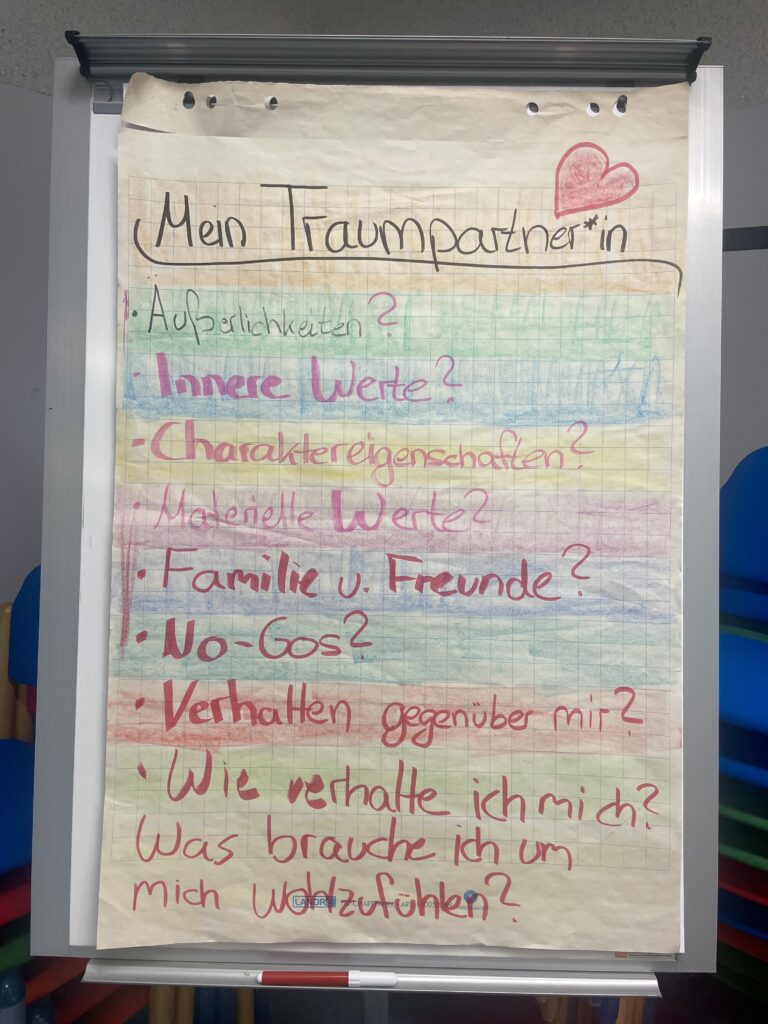 Mein Traumpartner*in
• Äußerlichkeiten?
• Innere Werte?
• Charaktereigenschaften?
• Materielle Werte?
• Familie u. Freunde?
• No-Gos?
• Verhalten gegenüber mir?
• Wie verhalte ich mich?
Was brauche ich um
mich wohlzufühlen?